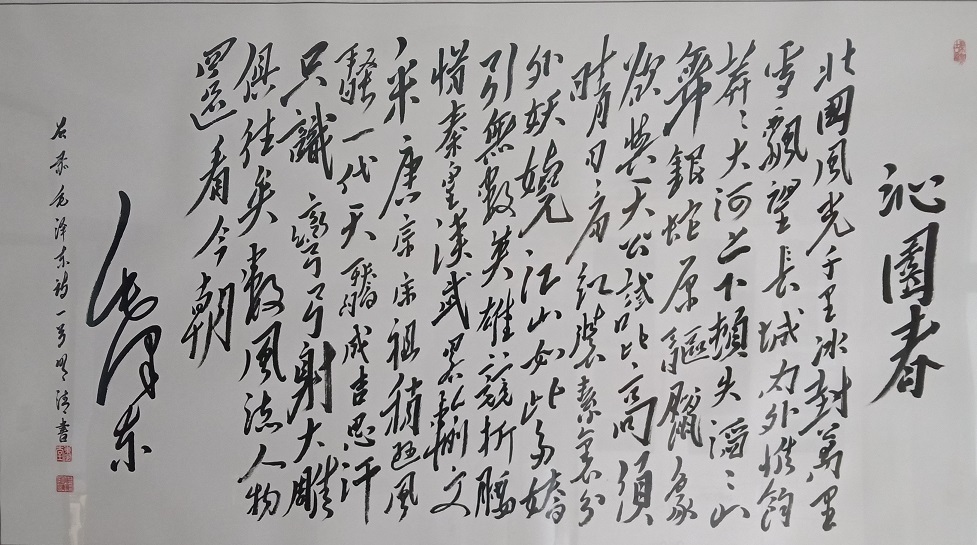 沁園春
北國風光千里冰封萬里
雪飄望長城内外惟餘
莽々大河上下頓失滔々山
舞銀蛇原驅臘象
欲與天公試比高須
晴日看紅裝素裹分
外妖嬈江山如此多嬌
引無數英雄競折腰
惜秦皇漢武略輸文
采唐宗宋祖稍遜風
騷一代天驕成吉思汗
只識彎弓射大雕
俱往矣數風流人物
還看今朝
毛澤東
毛泽东詩一首清書